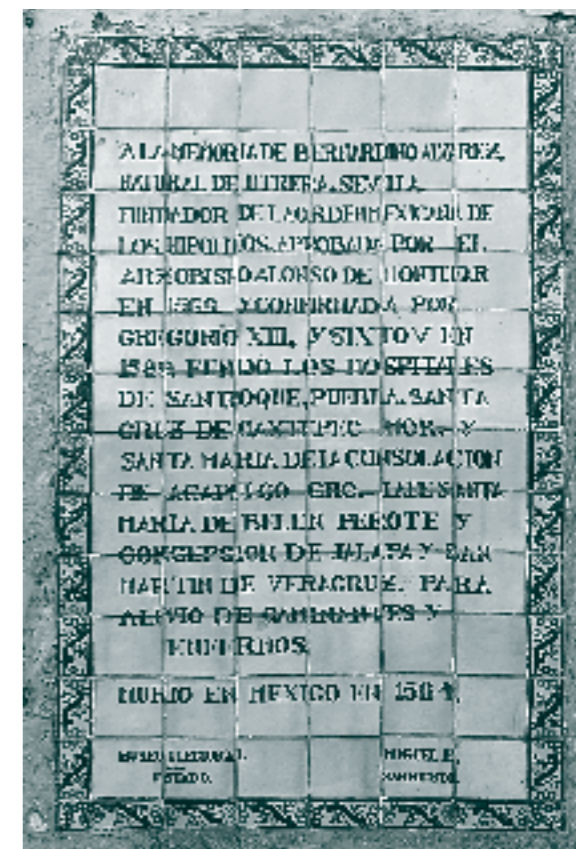 A LA MEMORIA DE BERNARDINO ALVAREZ,
NATURAL DE UTRERA. SEVILLA
FUNDADOR DE LA ORDEN MEXICANA DE
LOS HIPOLITOS. APROBADA POR EL
ARZOBISPO ALONSO DE MONTUFAR
EN 1569. Y CONFIRMADA POR
GREGORIO XIII, Y SIXTO V EN
FUNDO LOS HOSPITALES
DE SAN ROQUE, PUEBLA. SANTA
CRUZ DE OAXTEPEC MOR. Y
SANTA MARIA DE LA CONSOLACION
DE ACAPULCO GRO. SANTA
MARIA DE BELEN PEROTE Y
CONCEPCION DE JALAPA Y SAN
MARTIN DE VERACRUZ. PARA
ALIVIO DE CAMINANTES Y
ENFERMOS.
MURIO EN MEXICO EN 1584.
MUSEO REGIONAL
ESTADO.
SARMIENTO.